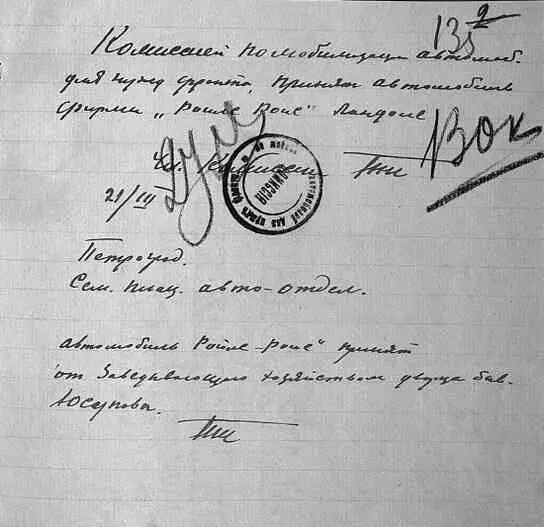 135 2
Комиссией по мобилизации автомоб.
для нужд фронта, принят автомобиль
фирмы „Ройльс Ройс" Ландоле
Чл. Комиссии
21/III
Петроград.
авто-отдел.
автомобиль Ройльс-Ройс" принят
от Заведывающего хозяйством дворца быв.
Юсупова.